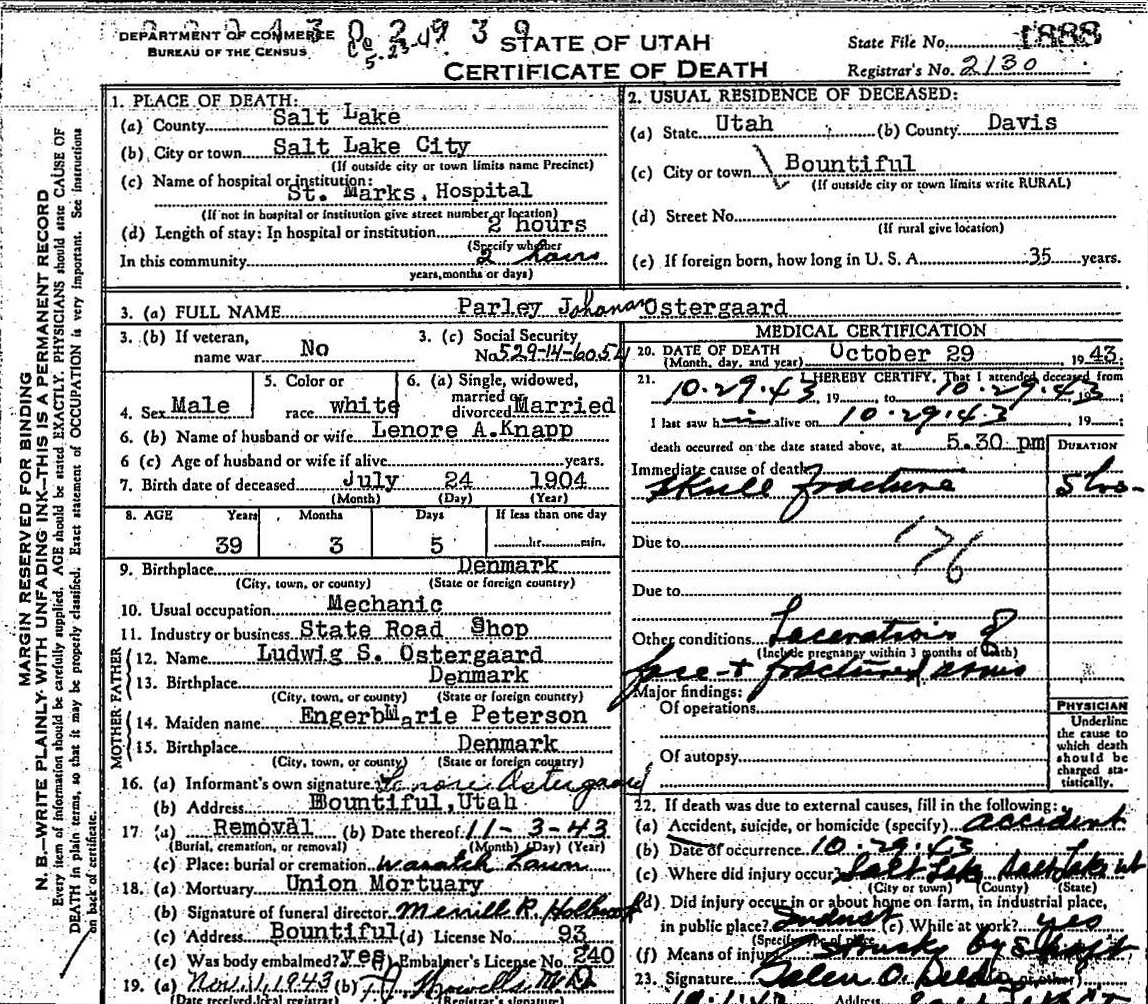 DEPARTMENT OF COMMERCE
BUREAU OF THE CENSUS
5-23-47
STATE OF UTAH
CERTIFICATE OF DEATH
State File No. 1888
Registrar's No. 2130
MARGIN RESERVED FOR BINDING
N. B.—WRITE PLAINLY-WITH UNFADING INK-THIS IS A PERMANENT RECORD
Every item of information should be carefully supplied. AGE should be stated EXACTLY. PHYSICIANS should state CAUSE OF
DEATH in plain terms, so that it may be properly classified. Exact statement of OCCUPATION is very important. See instructions
on back of certificate.
1. PLACE OF DEATH:
(a) County Salt Lake
(b) City or town Salt Lake City
(If outside city or town limits name Precinct)
(c) Name of hospital or institution:
St. Marks, Hospital
(If not in hospital or institution give street number or location)
(d) Length of stay: In hospital or institution 2 hours
(Specify whether
In this community 2 hours
years, months or days)
2. USUAL RESIDENCE OF DECEASED:
(a) State Utah (b) County Davis
(c) City or town Bountiful
(If outside city or town limits write RURAL)
(d) Street No.
(If rural give location)
(e) If foreign born, how long in U. S. A. 35 years.
3. (a) FULL NAME Parley Johanan Ostergaard
3. (b) If veteran,
name war No
3. (c) Social Security
No. 529-14-6054
4. Sex Male
5. Color or
race white
6. (a) Single, widowed,
married or
divorced Married
6. (b) Name of husband or wife Lenore A. Knapp
6 (c) Age of husband or wife if alive years.
7. Birth date of deceased July 24 1904
(Month) (Day) (Year)
8. AGE Years Months Days If less than one day
39 3 5 hr. min.
9. Birthplace Denmark
(City, town, or county) (State or foreign country)
10. Usual occupation Mechanic
11. Industry or business State Road Shop
FATHER
12. Name Ludwig S. Ostergaard
13. Birthplace Denmark
(City, town, or county) (State or foreign country)
MOTHER
14. Maiden name EngerbMarie Peterson
15. Birthplace Denmark
(City, town, or county) (State or foreign country)
16. (a) Informant's own signature Lenore Ostergaard
(b) Address Bountiful, Utah
17 (a) Removal (b) Date thereof 11-3-43
(Burial, cremation, or removal) (Month) (Day) (Year)
(c) Place: burial or cremation Wasatch Lawn
18. (a) Mortuary Union Mortuary
(b) Signature of funeral director Merrill R. Holbrook
(c) Address Bountiful (d) License No. 93
(e) Was body embalmed? yes Embalmer's License No. 240
19. (a) Nov. 1, 1943 (b)
(Date received local registrar) (Registrar's signature)
MEDICAL CERTIFICATION
20. DATE OF DEATH October 29 1943
(Month, day, and year)
21. I HEREBY CERTIFY, That I attended deceased from
10-29-43, 19 to 10-29-43, 19
I last saw him alive on 10-29-43, 19
death occurred on the date stated above, at 5.30 pm
DURATION
Immediate cause of death
Skull fracture 5 hrs-
Due to 176
Due to
Other conditions Lacerations of
(Include pregnancy within 3 months of death)
face + fractured arms
Major findings:
Of operations
Of autopsy
PHYSICIAN
Underline
the cause to
which death
should be
charged sta-
tistically.
22. If death was due to external causes, fill in the following:
(a) Accident, suicide, or homicide (specify) accident
(b) Date of occurrence 10-29-43
(c) Where did injury occur? Salt Lake Salt Lake ut
(City or town) (County) (State)
(d) Did injury occur in or about home on farm, in industrial place,
in public place? Indust (e) While at work? yes
(Specify type of place)
(f) Means of injury Struck by Shaft
23. Signature Galen O.
Address